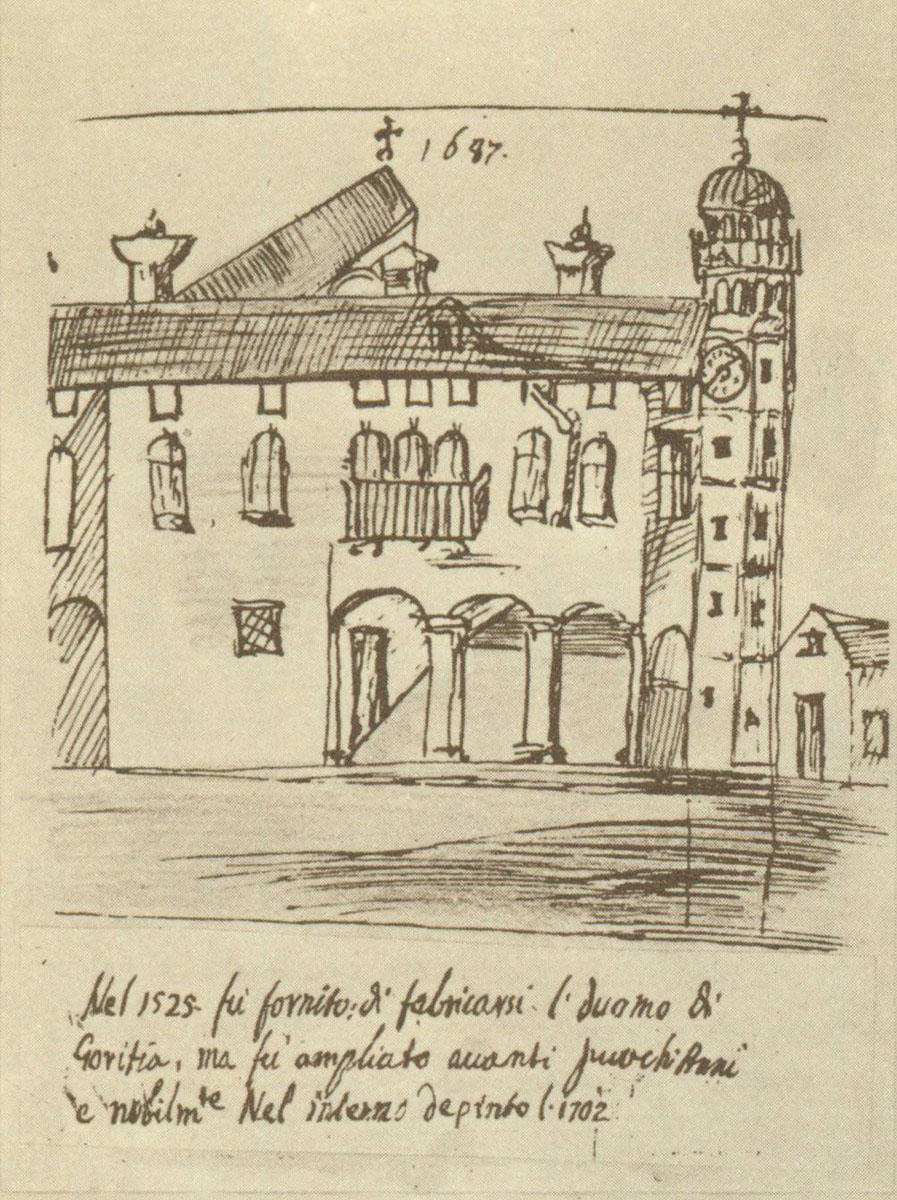 1687.
Nel 1525. fù fornito: di fabricarsi l' duomo di
Goritia, ma fù ampliato auanti puochi Anni
e nobilm:te Nel interno depinto l. 1702